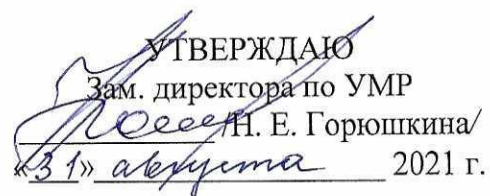 УТВЕРЖДАЮ
Зам. директора по УМР
/Н. Е. Горюшкина/
«31» августа 2021 г.